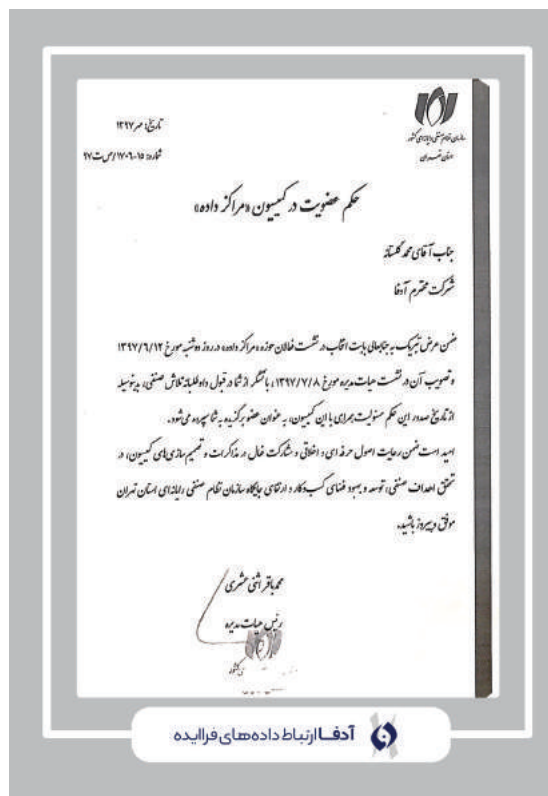 سازمان نظام صنفی رایانه‌ای کشور
استان تهران
تاریخ: مهر ۱۳۹۷
شماره: ۱۵-۱۷۰۶/ص ت ۹۷
حکم عضویت در کمیسیون «مراکز داده»
جناب آقای محمد گلستانه
شرکت محترم آدفا
ضمن عرض تبریک به جنابعالی بابت انتخاب در نشست فعالان حوزه «مراکز داده» در روز دوشنبه مورخ ۱۳۹۷/۶/۱۲
و تصویب آن در نشست هیات مدیره مورخ ۱۳۹۷/۷/۸، با تشکر از شما در قبول داوطلبانه تلاش صنفی، بدینوسیله
از تاریخ صدور این حکم مسئولیت همراهی با این کمیسیون، به عنوان عضو برگزیده به شما سپرده می‌شود.
امید است ضمن رعایت اصول حرفه ای و اخلاقی و مشارکت فعال در مذاکرات و تصمیم سازی‌های کمیسیون، در
تحقق اهداف صنفی، توسعه و بهبود فضای کسب و کار و ارتقای جایگاه سازمان نظام صنفی رایانه‌ای استان تهران
موفق و پیروز باشید.
محمدباقر اثنی عشری
رئیس هیات مدیره
آدفا ارتباط داده‌های فراایده